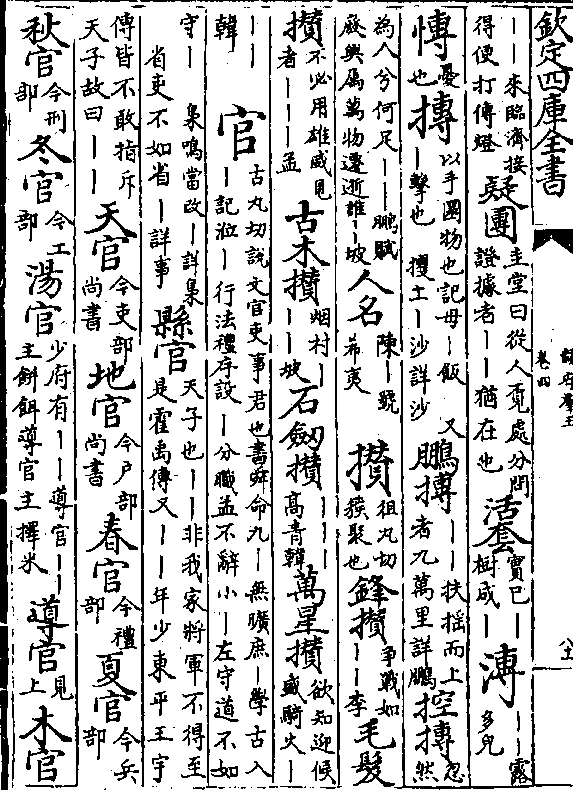 欽定四庫全書
韻府羣玉
卷四
——来臨濟接得便打傳燈 疑團 主堂曰從人覓處分明證據者——猶在也 活套 已樹成— 漙 ——露多皃
慱 憂也 摶 以手圜物也記毋—飯又—擊也擭土—沙詳沙 鵬摶 ——扶摇而上者九萬里詳鵬 控摶 忽然
為人兮何足——鵬賦廢興屬萬物遷逝誰—坡 人名 陳—號希夷 攅 徂丸切簇聚也 鋒攅 争戰如——李 毛髮
攅 不必用雄威見者———孟 古木攅 烟村———坡 石劒攅 ———高青韓 萬星攅 欲知迎候盛騎火—
——韓 官 古丸切説文官吏事君也書舜命九—無曠庶—學古入—記涖—行法禮存設—分職孟不辭小—左守道不如
守—梟鳴當改—詳梟省吏不如省—詳事 縣官 天子也——非我家將軍不得至是霍禹傳又——年少東平王宇
傳皆不敢指斥天子故曰—— 天官 今吏部尚書 地官 今户部尚書 春官 今禮部 夏官 今兵部
秋官 今刑部 冬官 今工部 湯官 少府有——導官——主餅餌導官主擇米 導官 見上 木官